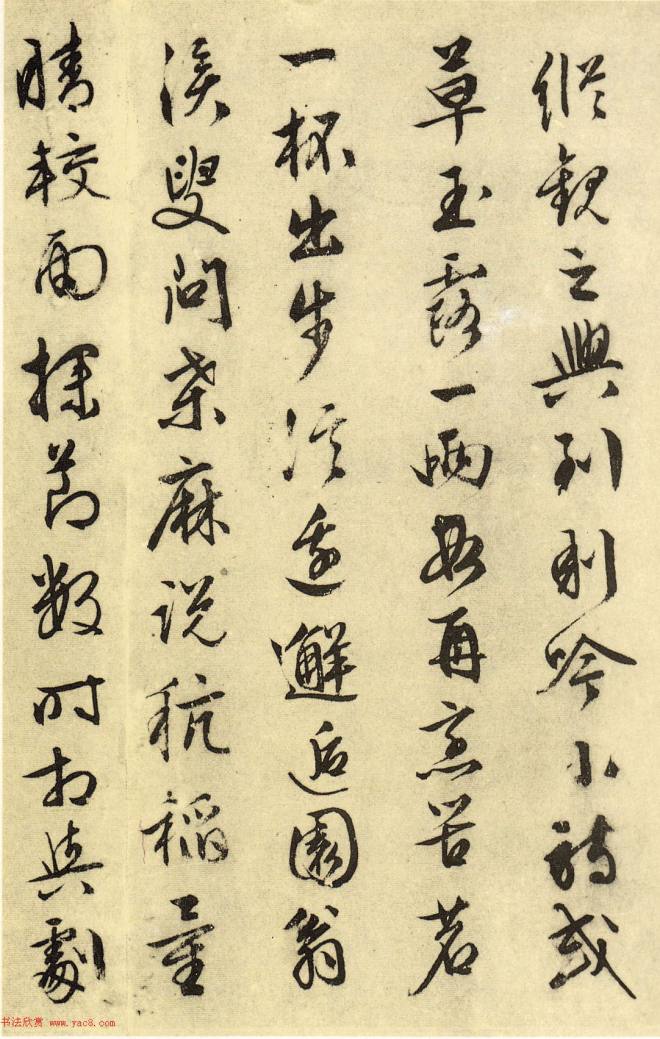 縱觀之興到則吟小詩或
草玉露一兩段再烹苦茗
一杯出步溪邊邂逅園翁
溪叟問桑麻說秔稻量
晴較雨探節數時相與劇
书法欣赏 www.yac8.com